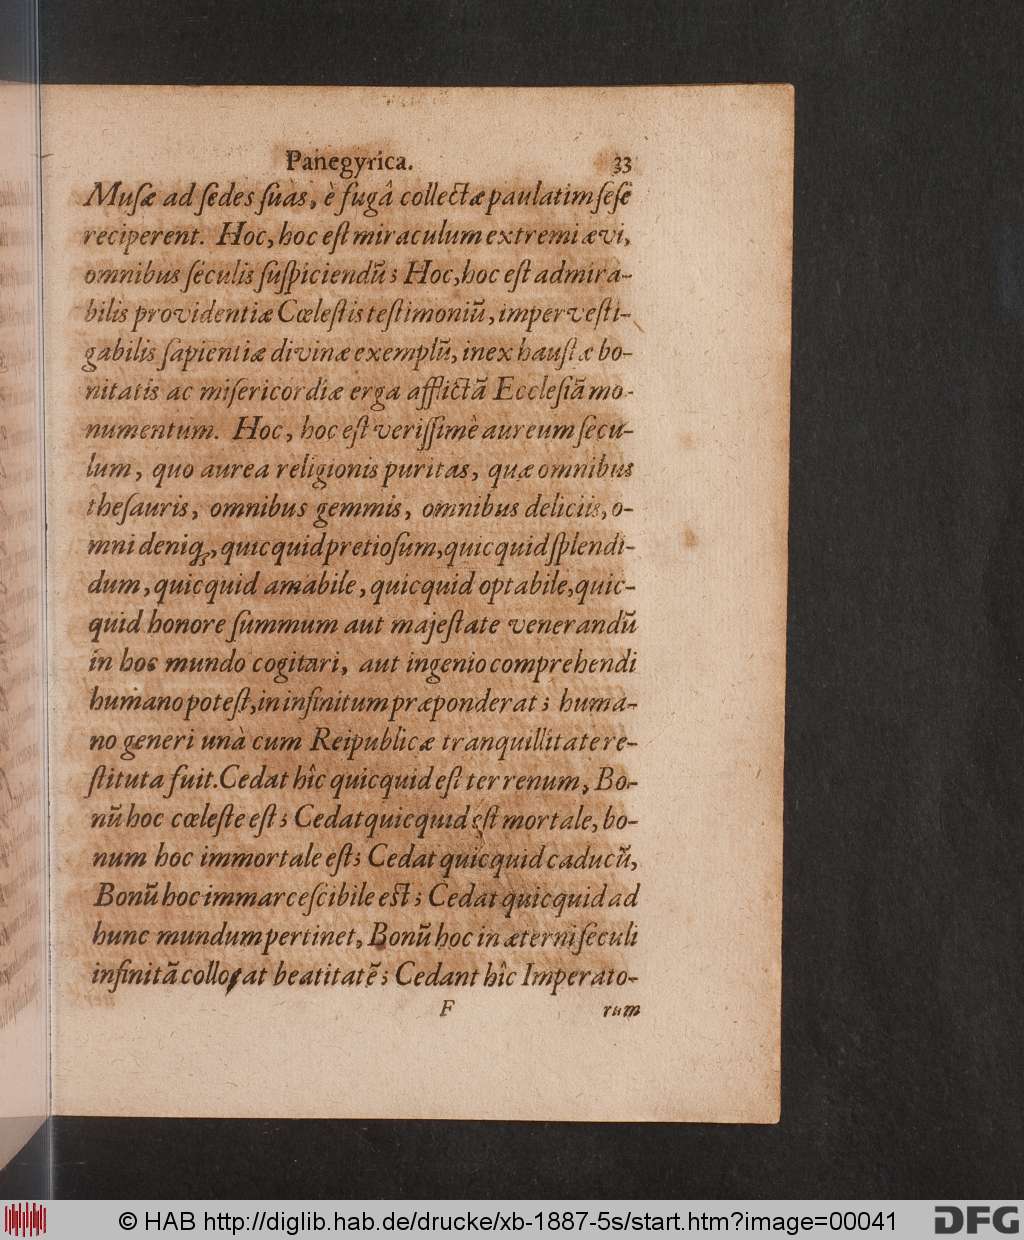 Panegyrica. 33
Muſæ ad ſedes ſuas, è fugâ collectæ paulatim ſeſe
reciperent. Hoc, hoc eſt miraculum extremi ævi,
omnibus ſeculis ſuſpiciendũ; Hoc, hoc eſt admira-
bilis providentiæ Cœleſtis teſtimoniũ, imperveſti-
gabilis ſapientiæ divinæ exemplũ, inexhauſtæ bo-
nitatis ac miſericordiæ erga afflictã Eccleſiã mo-
numentum. Hoc, hoc eſt veriſſimè aureum ſecu-
lum, quo aurea religionis puritas, quæ omnibus
theſauris, omnibus gemmis, omnibus deliciis, o-
mni deniq;, quicquid pretioſum, quicquid ſplendi-
dum, quicquid amabile, quicquid optabile, quic-
quid honore ſummum aut majeſtate venerandũ
in hoc mundo cogitari, aut ingenio comprehendi
humano poteſt, in infinitum præponderat; huma-
no generi unà cum Reipublicæ tranquillitate re-
ſtituta fuit. Cedat hîc quicquid eſt terrenum, Bo-
nũ hoc cœleſte eſt; Cedat quicquid eſt mortale, bo-
num hoc immortale eſt; Cedat quicquid caducũ,
Bonũ hoc immarceſcibile est; Cedat quicquid ad
hunc mundum pertinet, Bonũ hoc in æterni ſeculi
infinitã collocat beatitatẽ; Cedant hîc Imperato-
F rum
© HAB http://diglib.hab.de/drucke/xb-1887-5s/start.htm?image=00041
DFG